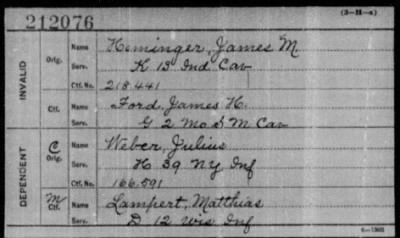 212076
(3-M-a)
INVALID
Orig. Name Heminger, James M.
Serv. K 13 Ind Cav
Ctf. No. 218.441
Ctf. Name Ford, James H.
Serv. G 2 Mo S M Cav
DEPENDENT
C Orig. Name Weber, Julius
Serv. H 39 NY Inf
Ctf. No. 166.591
M Ctf. Name Lampert, Matthias
Serv. D 12 Wis Inf